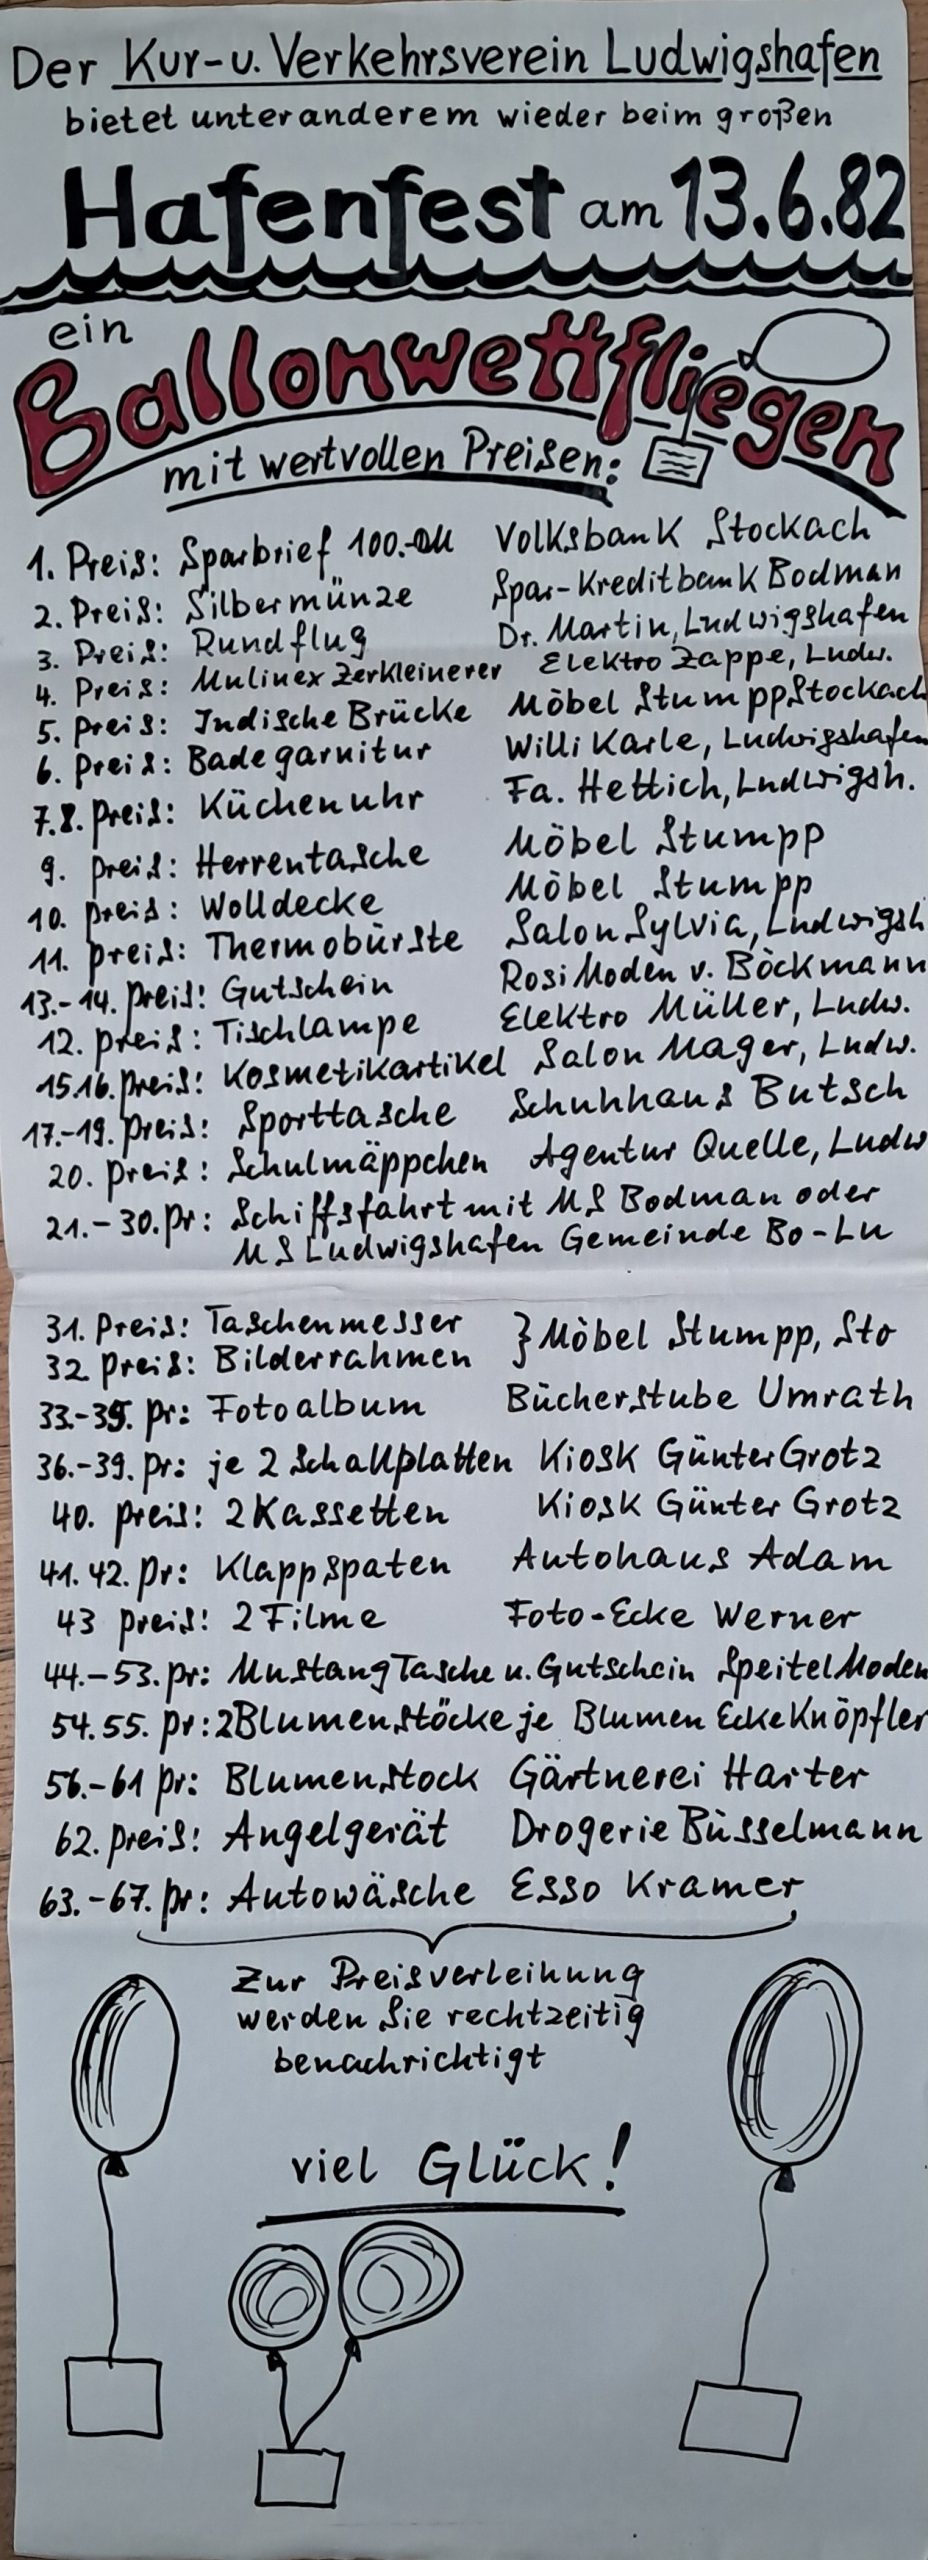 Der Kur-u. Verkehrsverein Ludwigshafen
bietet unter anderem wieder beim großen
Hafenfest am 13.6.82
ein
Ballonwettfliegen
mit wertvollen Preisen:
1. Preis: Sparbrief 100.-DM Volksbank Stockach
2. Preis: Silbermünze Spar-Kreditbank Bodman
3. Preis: Rundflug Dr. Martin, Ludwigshafen
4. Preis: Mulinex Zerkleinerer Elektro Zappe, Ludw.
5. Preis: Indische Brücke Möbel Stumpp Stockach
6. Preis: Badegarnitur Willi Karle, Ludwigshafen
7.8. Preis: Küchenuhr Fa. Hettich, Ludwigsh.
9. Preis: Herrentasche Möbel Stumpp
10. Preis: Wolldecke Möbel Stumpp
11. Preis: Thermobürste Salon Sylvia, Ludwigsh
13.-14. Preis: Gutschein Rosi Moden v. Böckmann
12. Preis: Tischlampe Elektro Müller, Ludw.
15.16. Preis: Kosmetikartikel Salon Mager, Ludw.
17.-19. Preis: Sporttasche Schuhhaus Butsch
20. Preis: Schulmäppchen Agentur Quelle, Ludw
21.-30. Pr: Schiffsfahrt mit MS Bodman oder
MS Ludwigshafen Gemeinde Bo-Lu
31. Preis: Taschenmesser } Möbel Stumpp, Sto
32. Preis: Bilderrahmen
33.-35. Pr: Fotoalbum Bücherstube Umrath
36.-39. Pr: je 2 Schallplatten Kiosk Günter Grotz
40. Preis: 2 Kassetten Kiosk Günter Grotz
41. 42. Pr: Klappspaten Autohaus Adam
43 Preis: 2 Filme Foto-Ecke Werner
44.-53. Pr: Mustang Tasche u. Gutschein Speitel Moden
54. 55. Pr: 2 Blumenstöcke je Blumen Ecke Knöpfler
56.-61 Pr: Blumenstock Gärtnerei Harter
62. Preis: Angelgerät Drogerie Büsselmann
63.-67. Pr: Autowäsche Esso Kramer
Zur Preisverleihung
werden Sie rechtzeitig
benachrichtigt
viel Glück!